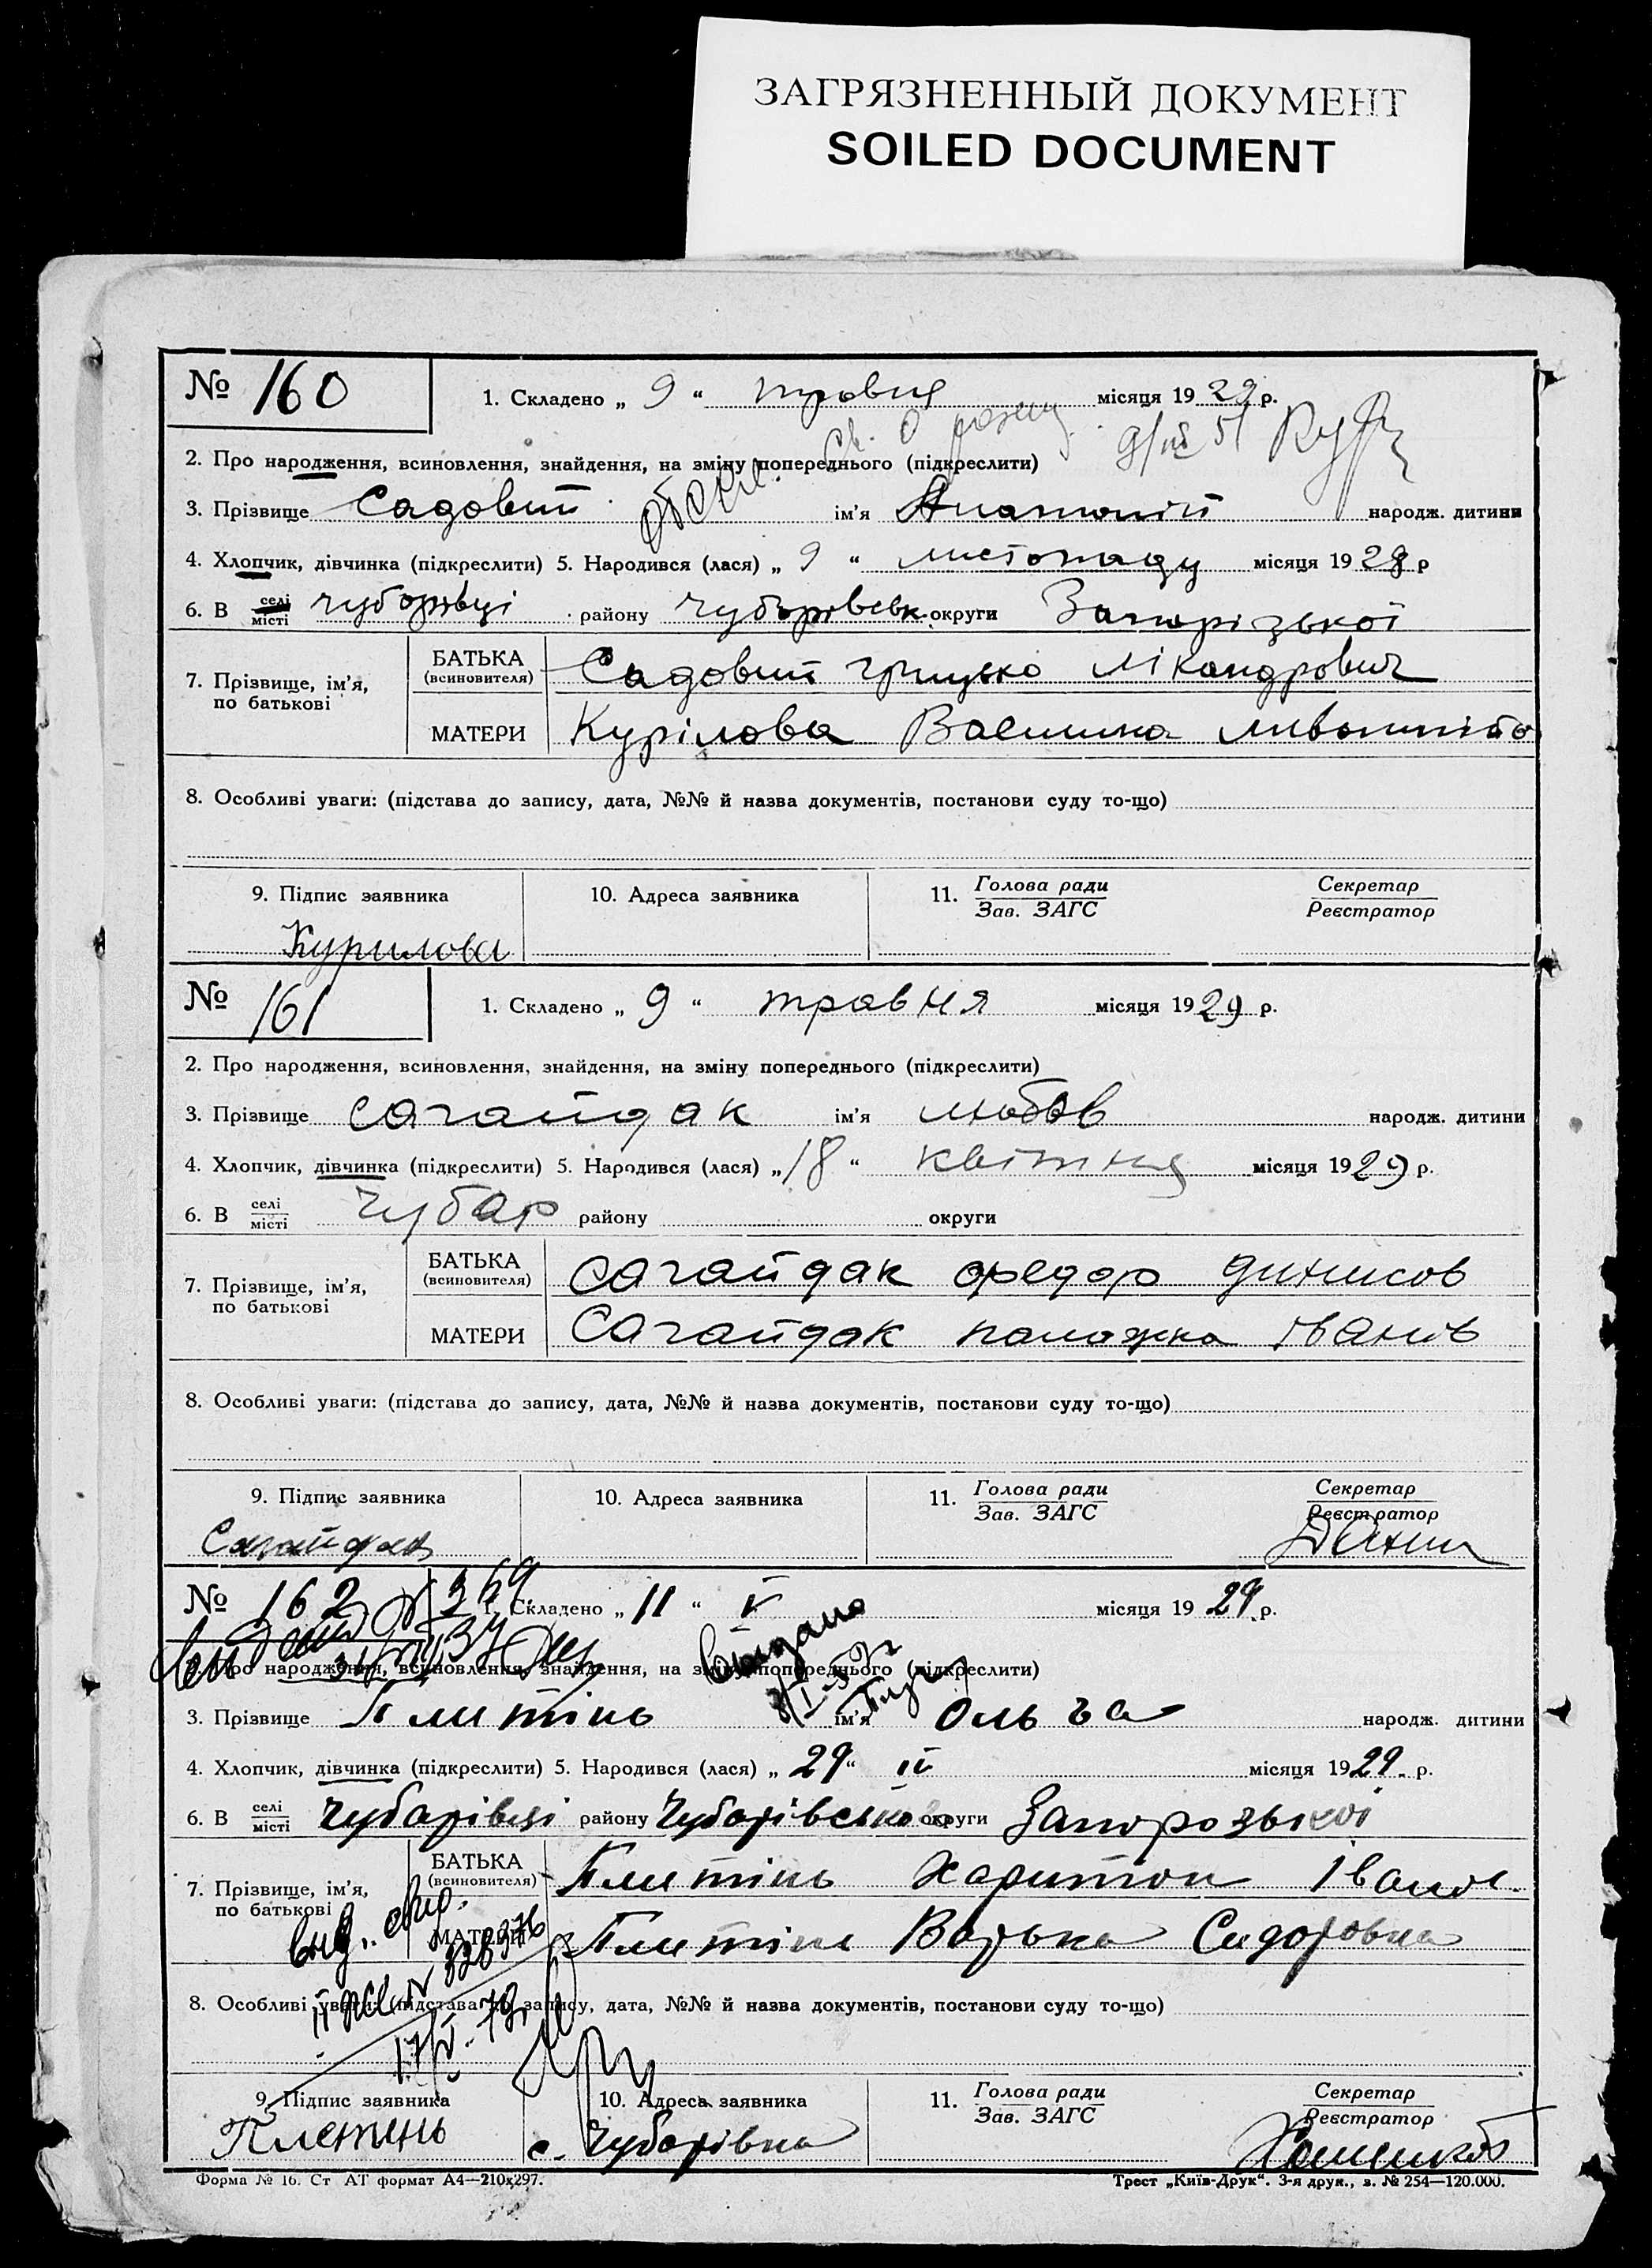 ЗАГРЯЗНЕННЫЙ ДОКУМЕНТ
SOILED DOCUMENT
№ 160
1. Складено „ 9 “ травня місяця 1929 р.
2. Про народження, всиновлення, знайдення, на зміну попереднього (підкреслити)
3. Прізвище Садовий ім'я Анатолій народж. дитини
4. Хлопчик, дівчинка (підкреслити) 5. Народився (лася) „ 9 “ листопаду місяця 1928 р
6. В селі місті Чубарівці району Чубарівськ. округи Запорізької
7. Прізвище, ім'я, по батькові
БАТЬКА (всиновителя) Садовий Грицько Лікандрович
МАТЕРИ Курілова Василина
8. Особливі уваги: (підстава до запису, дата, №№ й назва документів, постанови суду то-що)
9. Підпис заявника 10. Адреса заявника 11. Голова ради Зав. ЗАГС Секретар Реєстратор
Курилова
№ 161
1. Складено „ 9 “ травня місяця 1929 р.
2. Про народження, всиновлення, знайдення, на зміну попереднього (підкреслити)
3. Прізвище Сагайдак ім'я Любов народж. дитини
4. Хлопчик, дівчинка (підкреслити) 5. Народився (лася) „ 18 “ квітня місяця 1929 р.
6. В селі місті Чубар району округи
7. Прізвище, ім'я, по батькові
БАТЬКА (всиновителя) Сагайдак Федор Динисов
МАТЕРИ Сагайдак Палажка Іванів
8. Особливі уваги: (підстава до запису, дата, №№ й назва документів, постанови суду то-що)
9. Підпис заявника 10. Адреса заявника 11. Голова ради Зав. ЗАГС Секретар Реєстратор
Сагайдак
№ 162
1. Складено „ 11 “ V місяця 1929 р.
2. Про народження, всиновлення, знайдення, на зміну попереднього (підкреслити)
Выдано
3. Прізвище Плитінь ім'я Ольга народж. дитини
4. Хлопчик, дівчинка (підкреслити) 5. Народився (лася) „ 29 “ IV місяця 1929. р.
6. В селі місті Чубарівці району Чубарівського округи Запорозької
7. Прізвище, ім'я, по батькові
БАТЬКА (всиновителя) Плитінь Харитон Іванов.
МАТЕРИ Плитінь Варька Сидоровна
8. Особливі уваги: (підстава до запису, дата, №№ й назва документів, постанови суду то-що)
9. Підпис заявника 10. Адреса заявника 11. Голова ради Зав. ЗАГС Секретар Реєстратор
Плетень с. Чубарівка
Форма № 16. Ст АТ формат А4—210х297.
Трест „Київ-Друк“. 3-я друк., з. № 254—120.000.